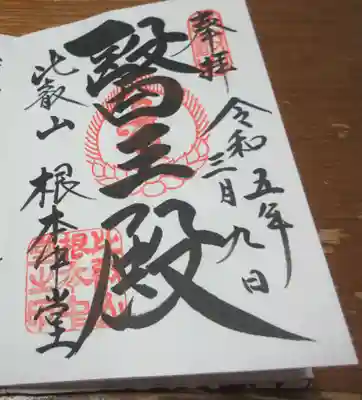 奉拝
令和五年三月九日
醫王殿
比叡山 根本中堂